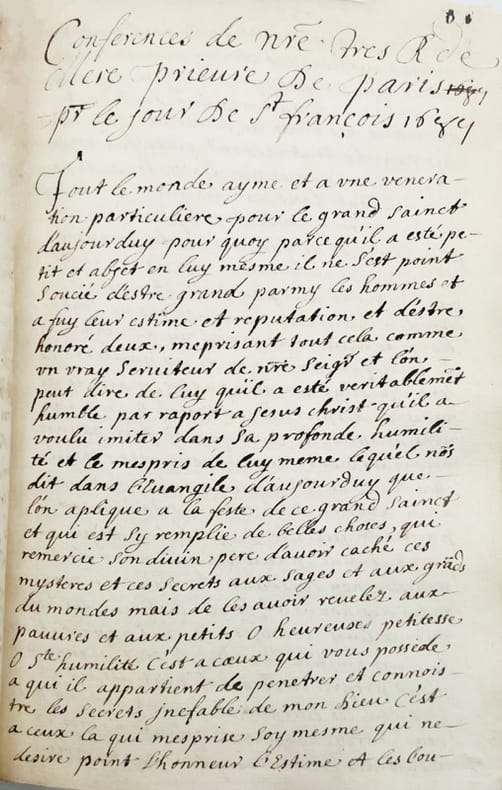 Conferences de nr̃e tres Rde
Mere prieure de paris
pr le jour de St françois 1689
Tout le monde ayme et a vne venera-
tion particuliere pour le grand sainct
d'aujourduy pour quoy parce qu'il a esté pe-
tit et abjet en luy mesme il ne s'est point
soucié d'estre grand parmy les hommes et
a fuy leur estime et reputation et d'estre
honoré deux, meprisant tout cela comme
vn vray seruiteur de nr̃e seigr et l'on
peut dire de luy qu'il a esté veritablemẽt
humble par raport a jesus christ qu'il a
voulu imiter dans sa profonde humili-
té et le mespris de luy meme lequel nõs
dit dans l'Euangile d'aujourduy que
l'on aplique a la feste de ce grand sainct
et qui est sy remplie de belles choses, qui
remercie son diuin pere d'auoir caché ces
mysteres et ces secrets aux sages et aux grãds
du mondes mais de les auoir reuelez aux
pauures et aux petits O heureuse petitesse
O Ste humilité C'est a ceux qui vous possede
a qui il appartient de penetrer et connois-
tre les secrets jnefable de mon Dieu C'est
a ceux la qui mesprise soy mesme qui ne
desire point l'honneur l'Estime et les lou-